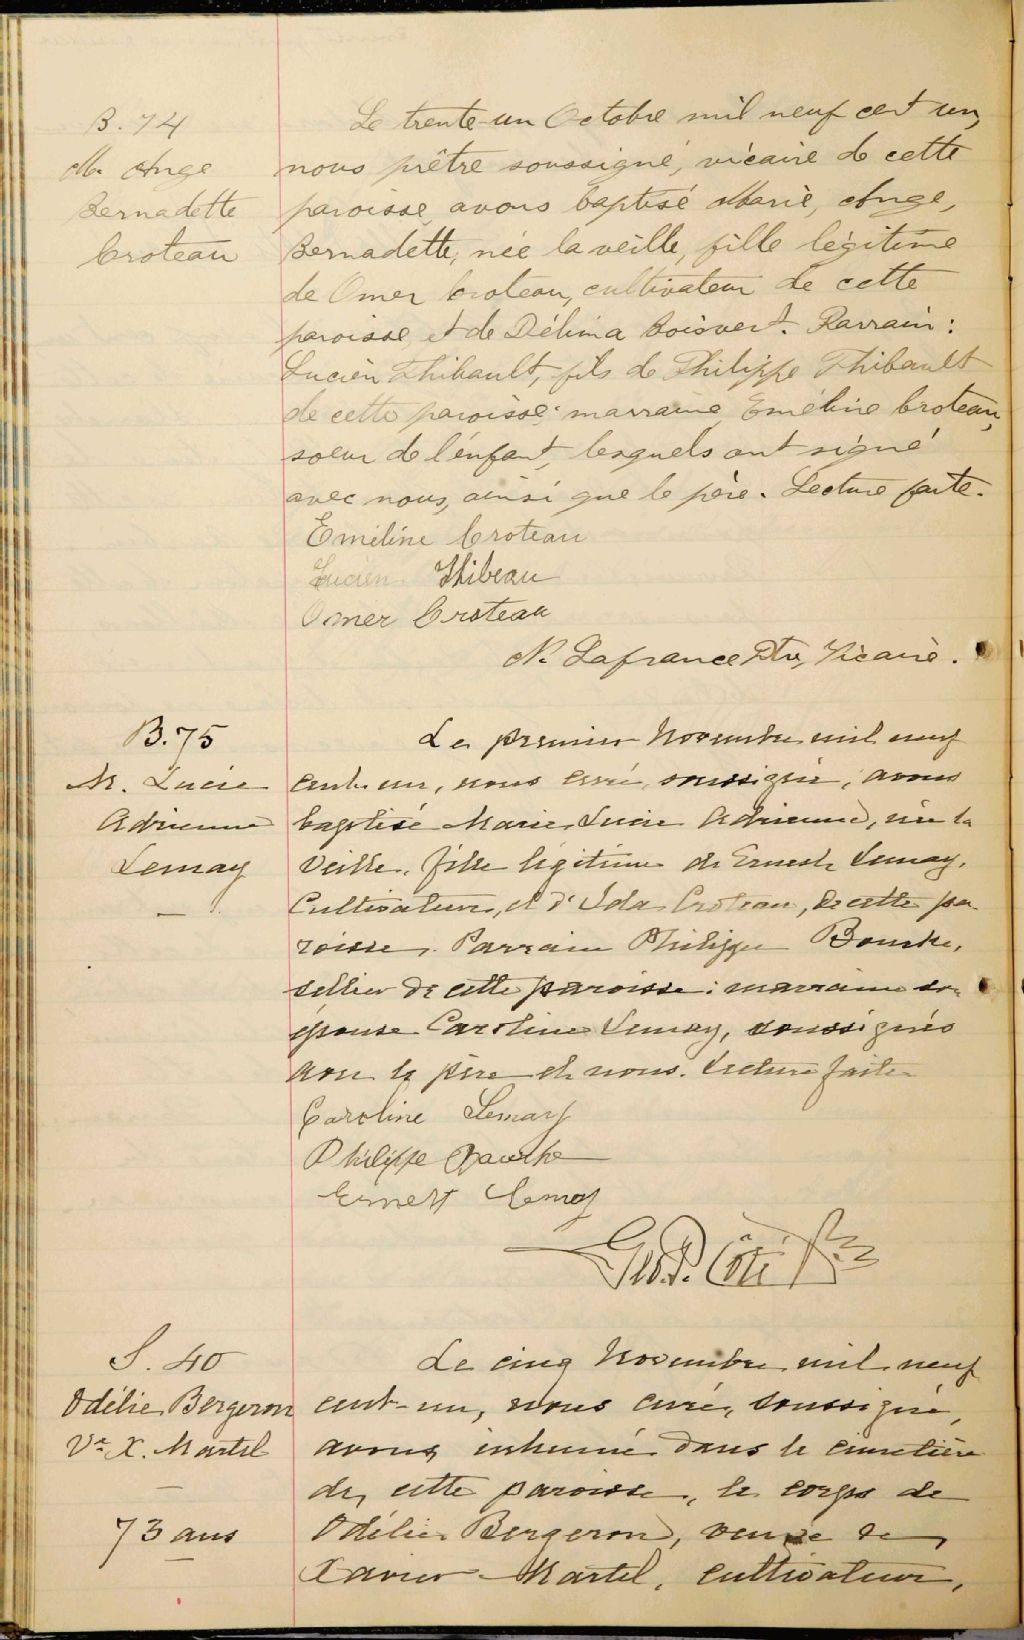 B. 74
M. Ange
Bernadette
Croteau
Le trente-un Octobre mil neuf cent un,
nous prêtre soussigné, vicaire de cette
paroisse, avons baptisé Marie, Ange,
Bernadette, née la veille, fille légitime
de Omer Croteau, cultivateur de cette
paroisse, et de Délima Boisvert. Parrain:
Lucien Thibault, fils de Philippe Thibault
de cette paroisse; marraine Eméline Croteau,
soeur de l'enfant, lesquels ont signé
avec nous, ainsi que le père. Lecture faite.
Eméline Croteau
Lucien Thibeau
Omer Croteau
N. Lafrance Ptre, Vicaire.
B. 75
M. Lucie
Adrienne
Lemay
Le premier Novembre mil neuf
cent un, nous curé soussigné, avons
baptisé Marie Lucie Adrienne, née la
veille, fille légitime de Ernest Lemay,
Cultivateur, et d'Ida Croteau, de cette pa-
roisse. Parrain Philippe Bourke,
sellier de cette paroisse: marraine son
épouse Caroline Lemay, soussignés
avec le père et nous. Lecture faite
Caroline Lemay
Philippe Bourke
Ernest Lemay
Geo. P. Côté Ptre
S. 40
Odélie Bergeron
Ve X. Martel
73 ans
Le cinq Novembre mil neuf
cent-un, nous curé, soussigné,
avons inhumé dans le cimetière
de cette paroisse, le corps de
Odélie Bergeron, veuve de
Xavier Martel, cultivateur,